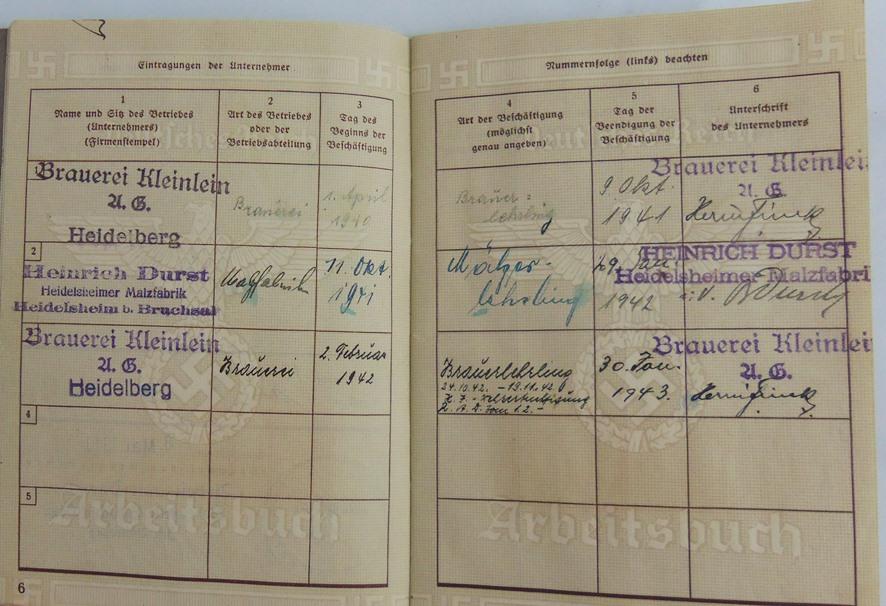 Eintragungen der Unternehmer
1
Name und Sitz des Betriebes
(Unternehmers)
(Firmenstempel)
2
Art des Betriebes
oder der
Betriebsabteilung
3
Tag des
Beginns der
Beschäftigung
1
Brauerei Kleinlein
A. G.
Heidelberg
Brauerei
1. April
1940
2
Heinrich Durst
Heidelsheimer Malzfabrik
Heidelsheim b. Bruchsal
Malzfabrik
11. Okt.
1941
Brauerei Kleinlein
A. G.
Heidelberg
Brauerei
2. Februar
1942
4
5
Arbeitsbuch
6
Nummernfolge (links) beachten
4
Art der Beschäftigung
(möglichst
genau angeben)
5
Tag der
Beendigung der
Beschäftigung
6
Unterschrift
des Unternehmers
Deutsches Reich
Brauer-
lehrling
9. Okt.
1941
Brauerei Kleinlein
A. G.
Mälzer-
lehrling
29. Jan.
1942
HEINRICH DURST
Heidelsheimer Malzfabrik
Brauerlehrling
24.10.42. - 19.11.42
30. Jan.
1943.
Brauerei Kleinlein
A. G.
Arbeitsbuch